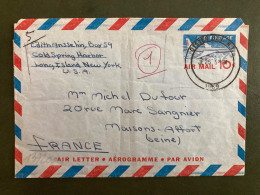 5
Edith Anssehn, Box 59
Cold Spring Harbor
Long Island New York
U.S.A.
1
AIR MAIL 10
Mme Michel Dufour
20 rue Marc Sangnier
Maisons-Alfort
(Seine)
FRANCE
AIR LETTER • AÉROGRAMME • PAR AVION